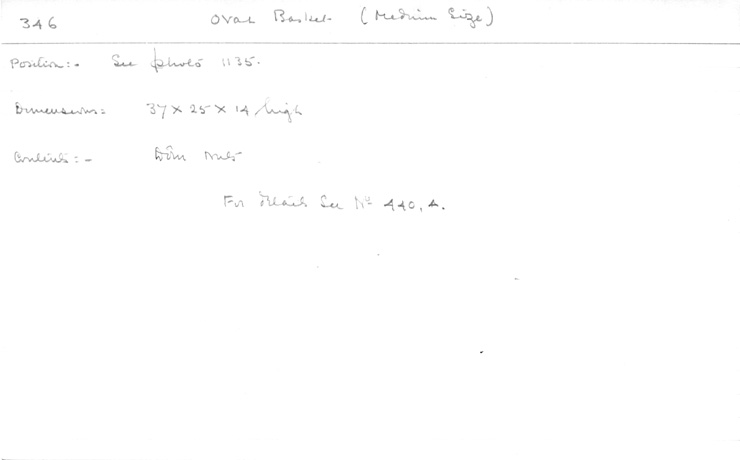 346 Oval Basket (Medium Size)
Position:- See photo 1135.
Dimensions: 37 x 25 x 14 high
Contents:- Dôm nuts
For details See Nº 440, A.